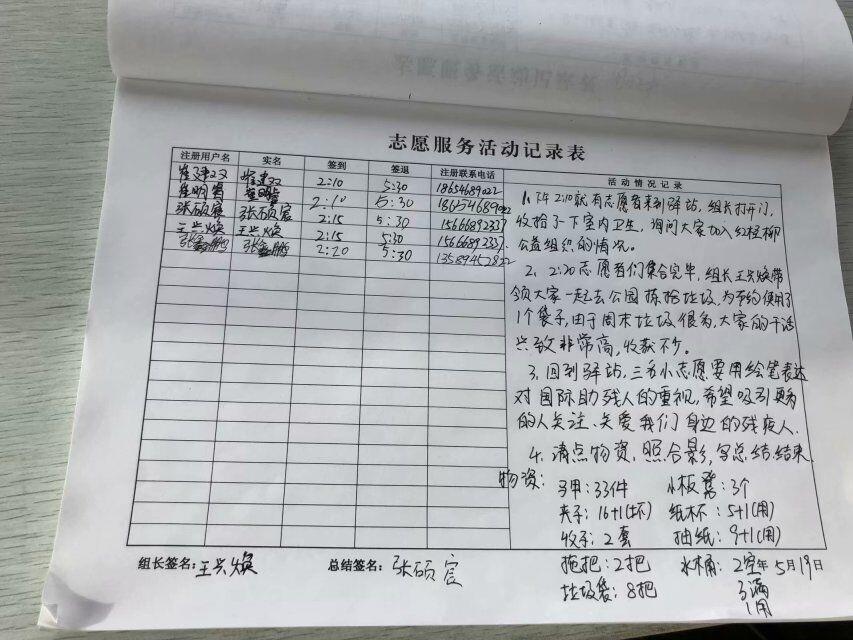 志愿服务活动记录表
注册用户名 实名 签到 签退 注册联系电话 活动情况记录
崔建双 崔建双 2:10 5:30 18654689022
崔明睿 2:10 5:30 18654689022
张硕宸 张硕宸 2:15 5:30
王兴焕 王兴焕 2:15 5:30
张鑫鹏 张鑫鹏 2:20 5:30
1、下午2:10就有志愿者来到驿站,组长打开门,
收拾了下室内卫生,询问大家加入红柽柳
公益组织的情况。
2、2:20志愿者们集合完毕,组长王兴焕带
领大家一起去公园拣拾垃圾,为节约使用了
1个袋子,由于周末垃圾很多,大家的干活
兴致非常高,收获不少。
3、回到驿站,三名小志愿要用绘笔表达
对国际助残人的重视,希望吸引更多
的人关注、关爱我们身边的残疾人、
4、清点物资、照合影,写总结,结束
物资: 马甲:33件 小板凳:3个
夹子:16+1(坏) 纸杯:5+1(用)
收子:2套 抽纸:9+1(用)
拖把:2把 水桶:2空 年5月19日
垃圾袋:8把 3满
1用
组长签名:王兴焕 总结签名:张硕宸